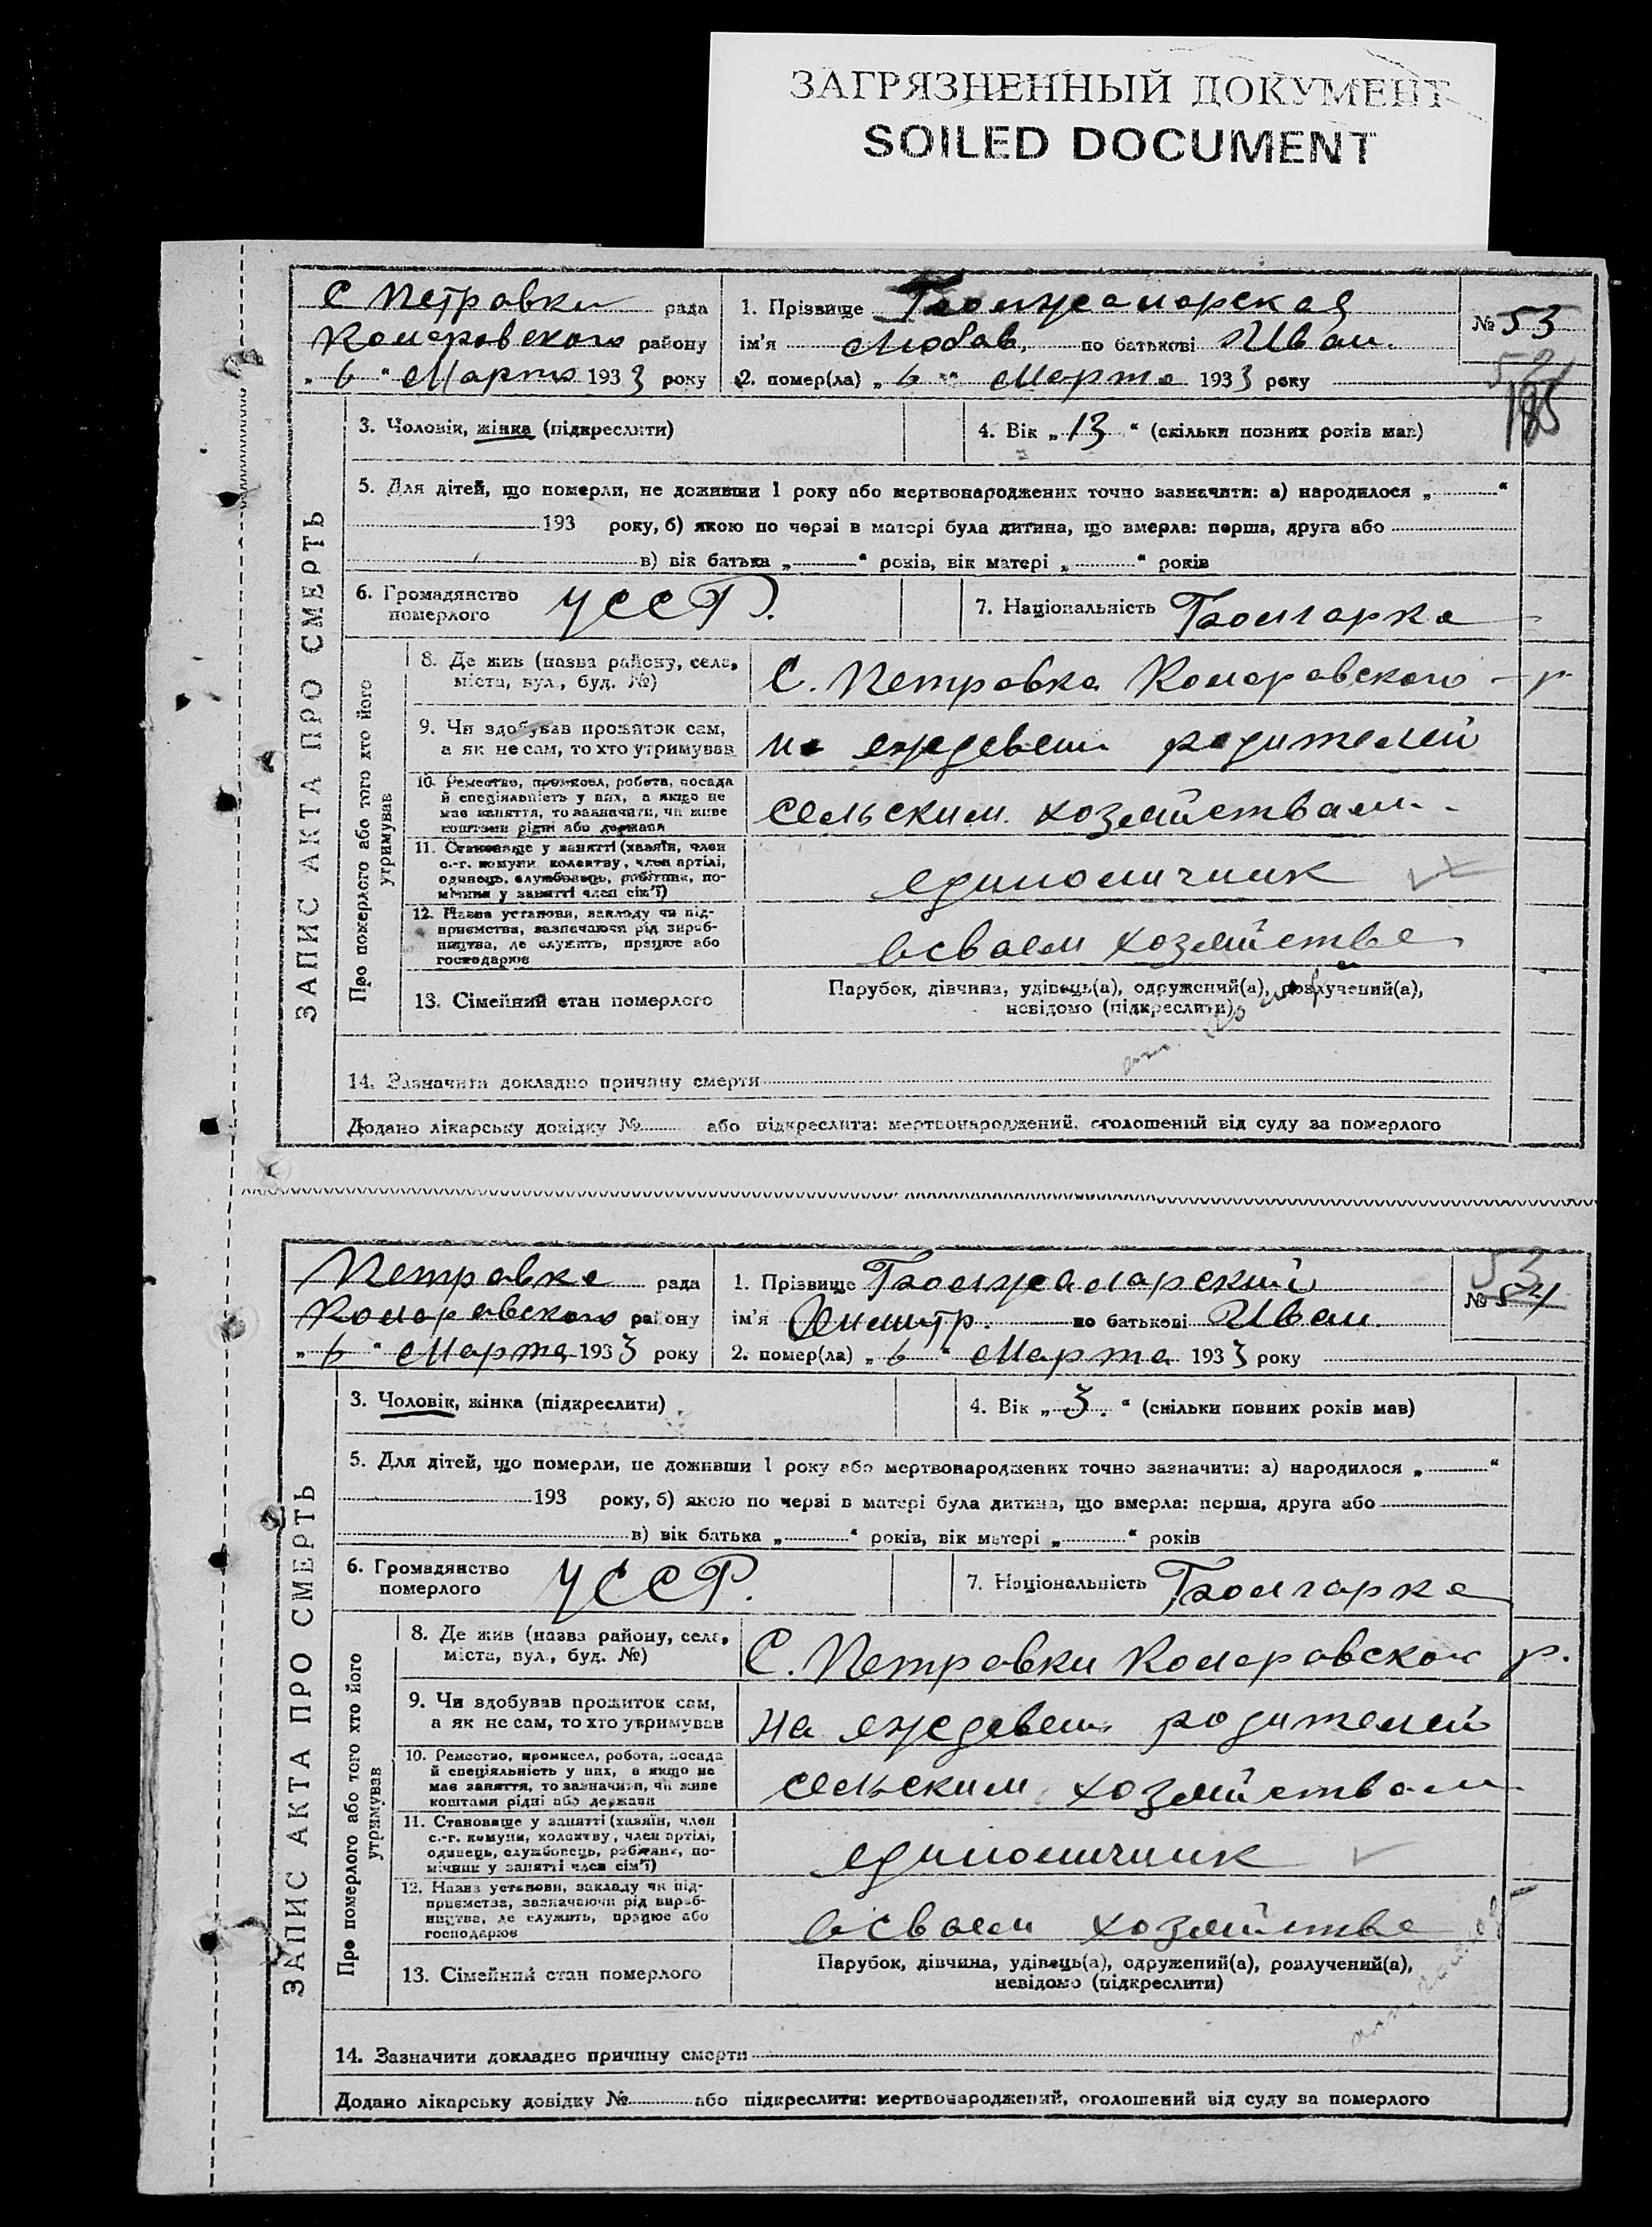 ЗАГРЯЗНЕННЫЙ ДОКУМЕНТ
SOILED DOCUMENT
С Петровки рада
Коларовского району
„ 6 “ Марта 1933 року
1. Прізвище Болжаларская
ім'я Любов, по батькові Иван.
2. помер(ла) „ 6 “ Марта 1933 року
№ 53
52
ЗАПИС АКТА ПРО СМЕРТЬ
3. Чоловік, жінка (підкреслити)
4. Вік „ 13 “ (скільки повних років мав)
5. Для дітей, що померли, не доживши 1 року або мертвонароджених точно зазначити: а) народилося „ “
193 року, б) якою по черзі в матері була дитина, що вмерла: перша, друга або
в) вік батька „ “ років, вік матері „ “ років
6. Громадянство
померлого
УССР.
7. Національність Болгарка
Про померлого або того хто його
утримував
8. Де жив (назва району, села,
міста, вул., буд. №)
С. Петровка Коларовского р.
9. Чи здобував прожиток сам,
а як не сам, то хто утримував
на еждевени родителей
10. Ремество, промисел, робота, посада
й спеціяльність у них, а якщо не
має заняття, то зазначити, чи живе
коштами рідні або держави
сельским хозяйствам
11. Становище у занятті (хазяїн, член
с.-г. комуни, колектву, член артілі,
одинець, службовець, робітник, по-
мічник у занятті член сім'ї)
единоличник
12. Назва установи, закладу чи під-
приємства, зазначаючи рід вироб-
ництва, де служить, працює або
господарює
всваем хозяйстве
13. Сімейний стан померлого
Парубок, дівчина, удівець(а), одружений(а), розлучений(а),
невідомо (підкреслити)
14. Зазначити докладно причину смерти
Додано лікарську довідку № або підкреслити: мертвонароджений, оголошений від суду за померлого
Петровка рада
Коларовского району
„ 6 “ Марта 1933 року
1. Прізвище Болжаларский
ім'я Димитр. по батькові Иван.
2. помер(ла) „ 6 “ Марта 1933 року
53
№ 54
ЗАПИС АКТА ПРО СМЕРТЬ
3. Чоловік, жінка (підкреслити)
4. Вік „ 3. “ (скільки повних років мав)
5. Для дітей, що померли, не доживши 1 року або мертвонароджених точно зазначити: а) народилося „ “
193 року, б) якою по черзі в матері була дитина, що вмерла: перша, друга або
в) вік батька „ “ років, вік матері „ “ років
6. Громадянство
померлого
УССР.
7. Національність Болгарка
Про померлого або того хто його
утримував
8. Де жив (назва району, села,
міста, вул., буд. №)
С. Петровки Коларовского р.
9. Чи здобував прожиток сам,
а як не сам, то хто утримував
на еждевени родителей
10. Ремество, промисел, робота, посада
й спеціяльність у них, а якщо не
має заняття, то зазначити, чи живе
коштами рідні або держави
сельским хозяйствам
11. Становище у занятті (хазяїн, член
с.-г. комуни, колектву, член артілі,
одинець, службовець, робітник, по-
мічник у занятті член сім'ї)
единоличник
12. Назва установи, закладу чи під-
приємства, зазначаючи рід вироб-
ництва, де служить, працює або
господарює
всваем хозяйстве
13. Сімейний стан померлого
Парубок, дівчина, удівець(а), одружений(а), розлучений(а),
невідомо (підкреслити)
14. Зазначити докладно причину смерти
Додано лікарську довідку № або підкреслити: мертвонароджений, оголошений від суду за померлого